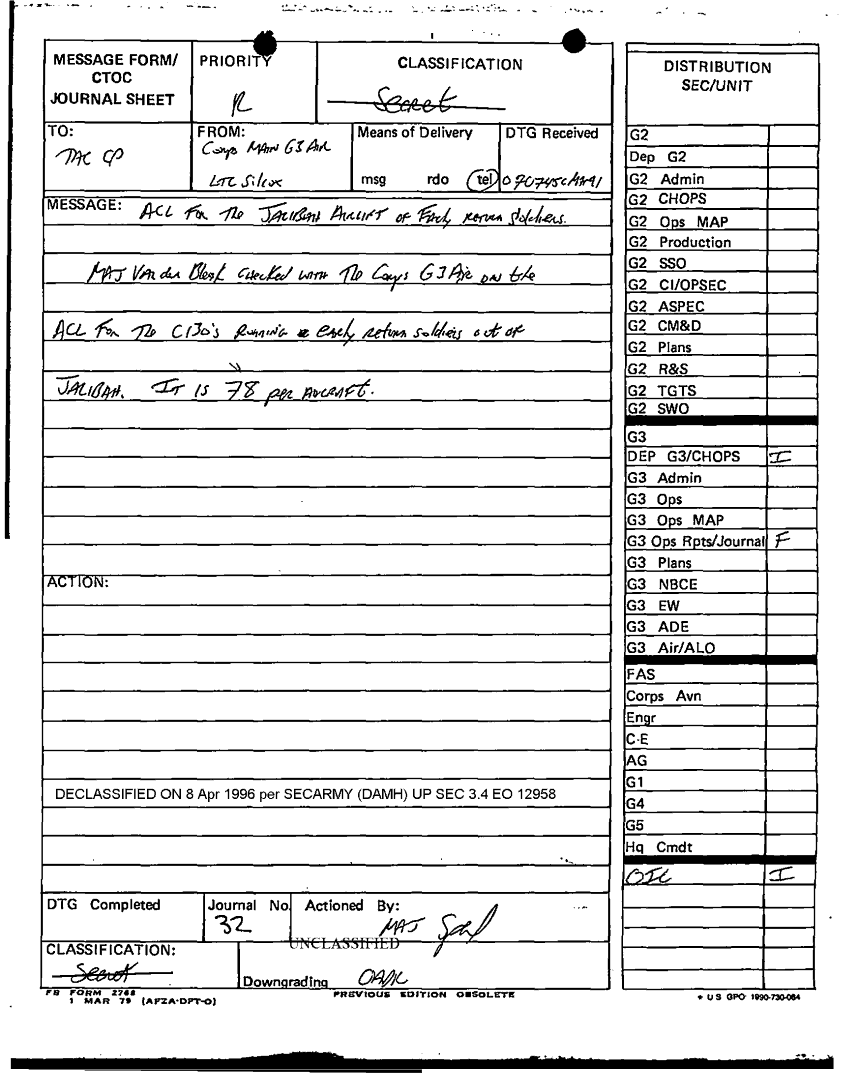 MESSAGE FORM/ CTOC JOURNAL SHEET
PRIORITY
R
CLASSIFICATION
Secret
TO:
TAC CP
FROM:
Corps MAIN G3 AIR
LTC Silcox
Means of Delivery
msg rdo tel
DTG Received
070745CMAR91
MESSAGE: ACL For The JALIBAH AIRLIFT of Early return soldiers.
MAJ Van der Bleek checked with The Corps G3 Air on the
ACL For The C130's Running early return soldiers out of
JALIBAH. It is 78 per aircraft.
ACTION:
DECLASSIFIED ON 8 Apr 1996 per SECARMY (DAMH) UP SEC 3.4 EO 12958
DTG Completed
Journal No.
32
Actioned By:
MAJ
UNCLASSIFIED
CLASSIFICATION:
Secret
Downgrading OADR
FB FORM 2768
1 MAR 79 (AFZA-DPT-O)
PREVIOUS EDITION OBSOLETE
DISTRIBUTION
SEC/UNIT
G2
Dep G2
G2 Admin
G2 CHOPS
G2 Ops MAP
G2 Production
G2 SSO
G2 CI/OPSEC
G2 ASPEC
G2 CM&D
G2 Plans
G2 R&S
G2 TGTS
G2 SWO
G3
DEP G3/CHOPS I
G3 Admin
G3 Ops
G3 Ops MAP
G3 Ops Rpts/Journal F
G3 Plans
G3 NBCE
G3 EW
G3 ADE
G3 Air/ALO
FAS
Corps Avn
Engr
C-E
AG
G1
G4
G5
Hq Cmdt
OIC I
* US GPO 1990-730-064